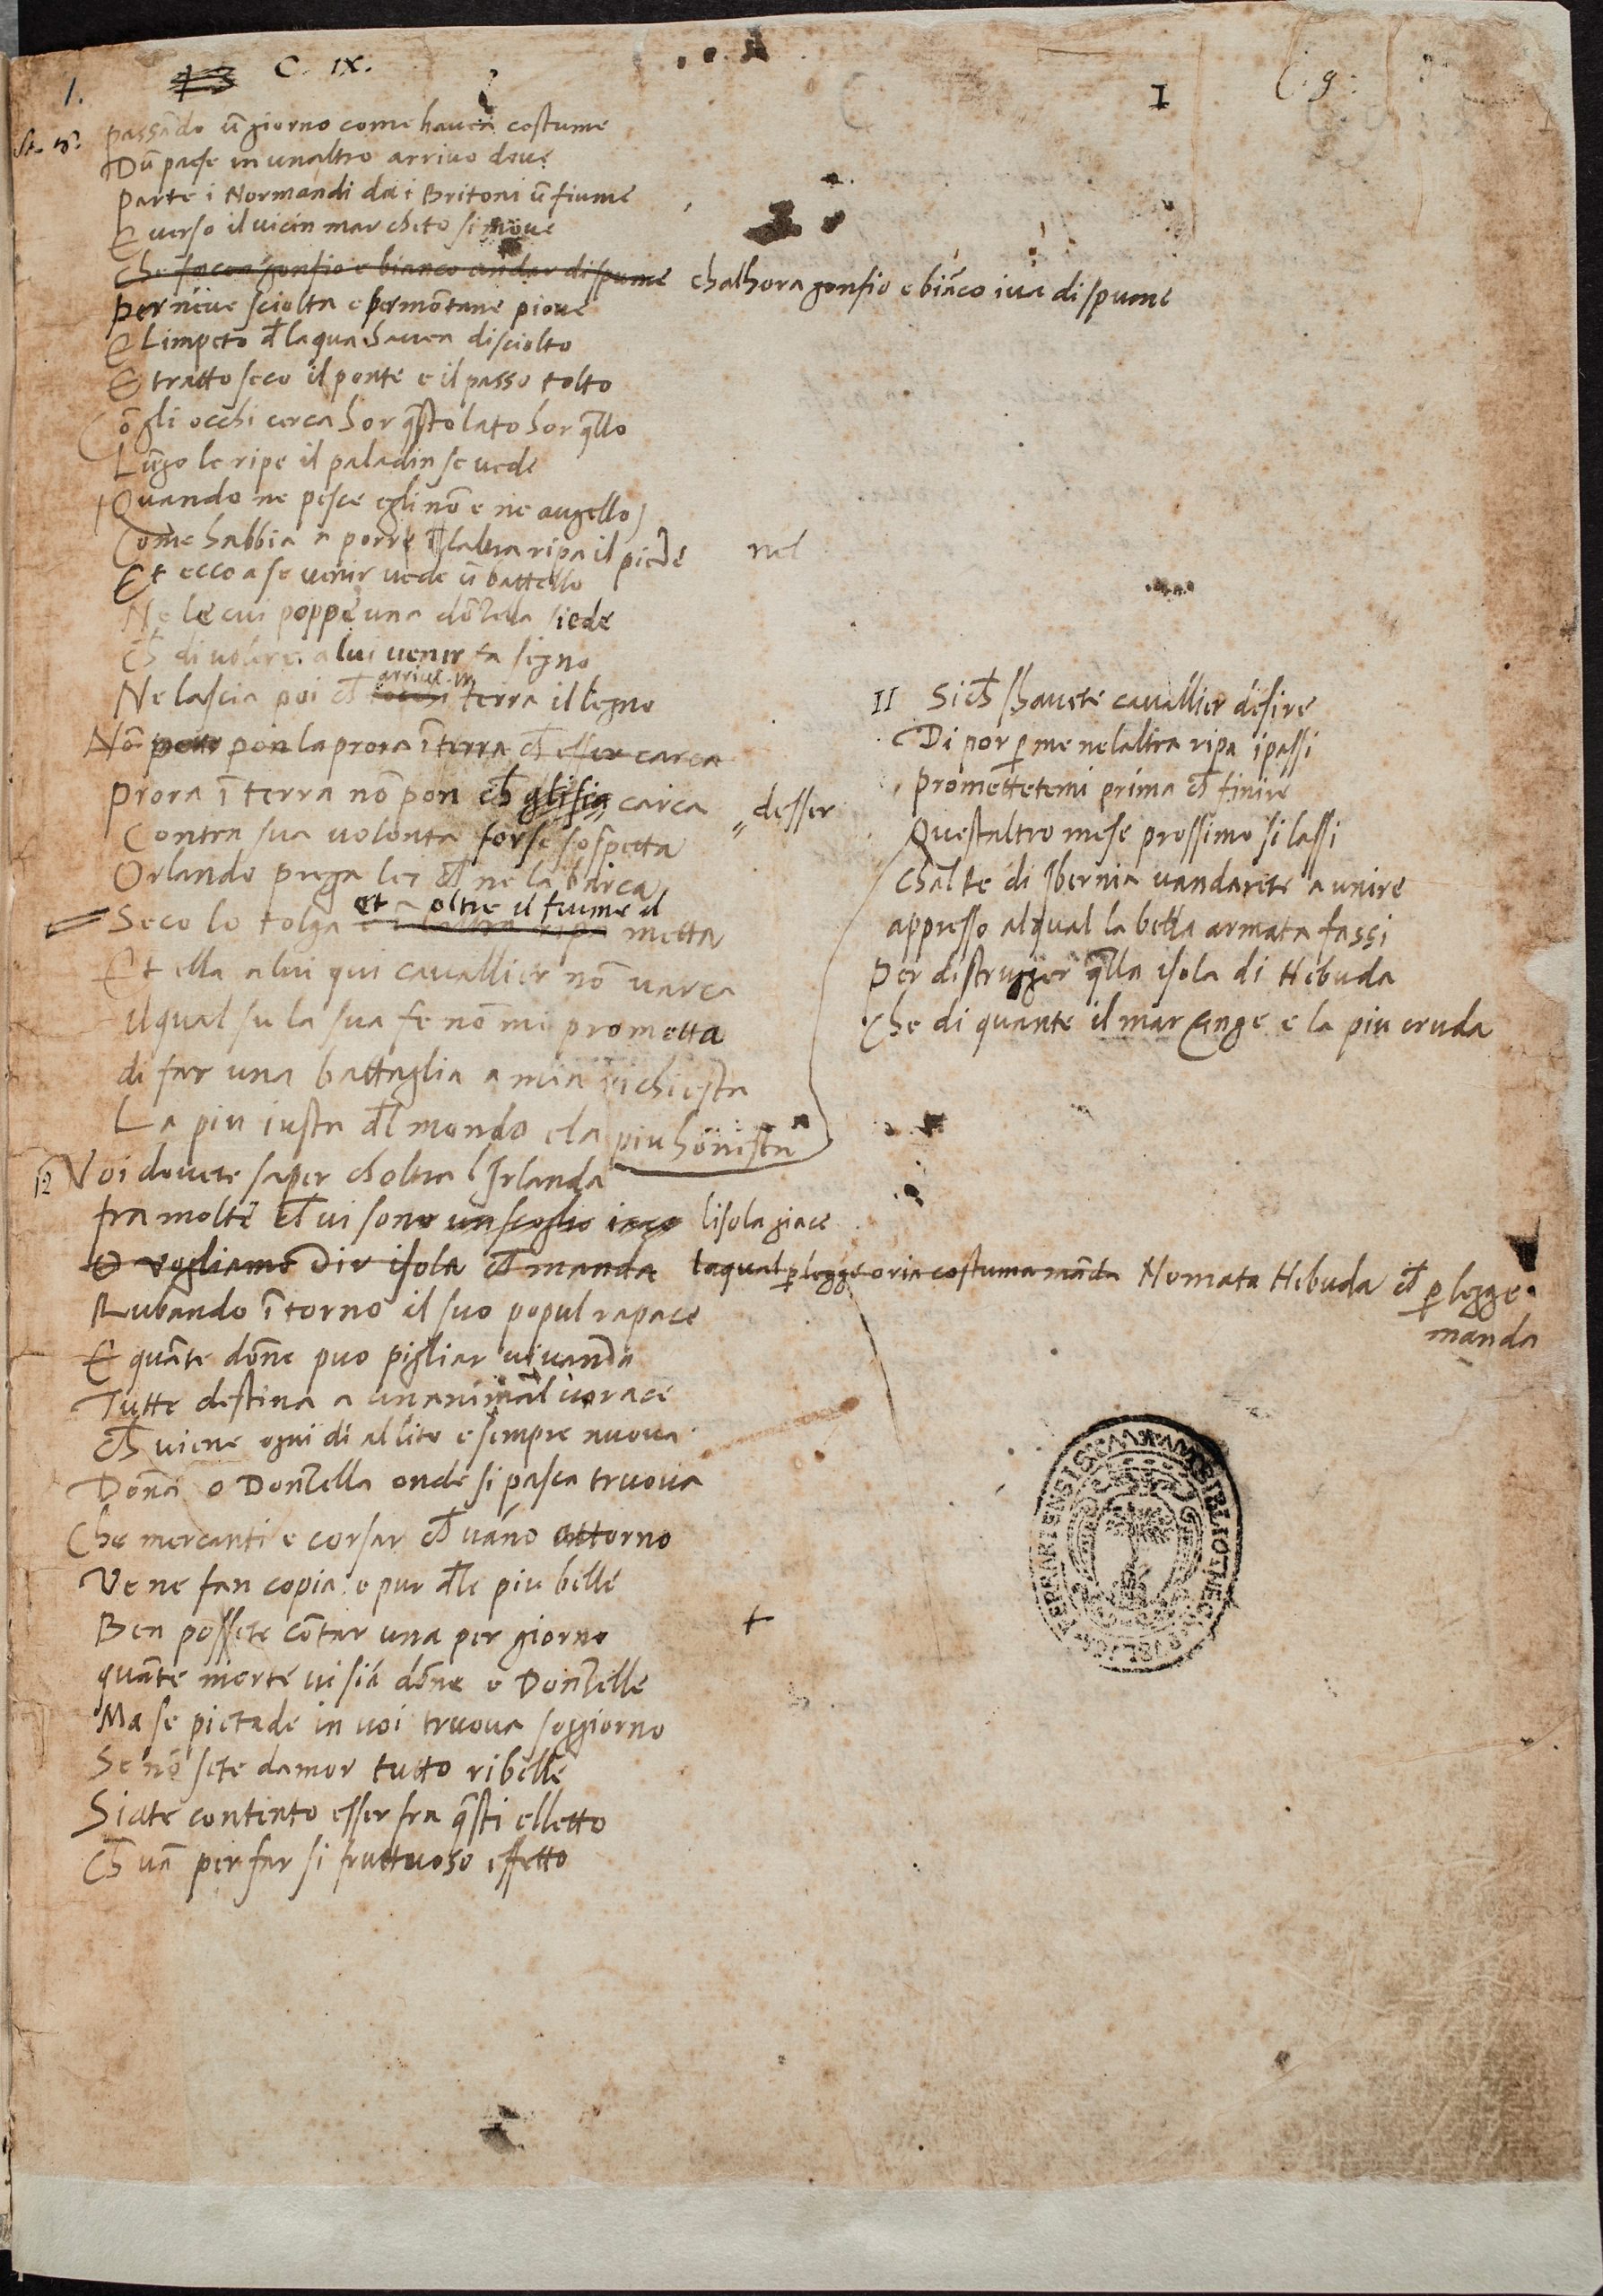 1.
C. IX.
I
C. 9.
passãdo ũ giorno come havea costume
Dũ paese in unaltro arrivo dove
parte i Normandi da i Britoni ũ fiume
E verso il vicin mar cheto si move
Che facea gonfio e bianco andar di spume chalhora gonfio e biãco iva di spume
per neive sciolta e per mõtane piove
E limpeto đ laqua havea disciolto
E tratto seco il ponte e il passo tolto
Cõ gli occhi cerca hor q̃sto lato hor q̃llo
Lũgo le ripe il paladin se vede
(Quando ne pesce egli nõ e ne augello)
Come habbia a porre ĩ laltra ripa il piede nel
Et ecco a se venir vede ũ battello
Ne le cui poppe una dõzella siede
Ch̃ di volere a lui venir fa segno
arrive in
Ne lascia poi ch̃ terra il legno
Nõ pon la prora ĩ terra ch̃ esser carca
prora ĩ terra nõ pon ch̃ carca desser
Contra sua volonta forse sospetta
Orlando prega lei ch̃ ne la barca
et oltre il fiume il
Seco lo tolga metta
Et ella a lui qui cavallier nõ varca
ilqual su la sua fe nõ mi prometta
di far una battaglia a mia richiesta
La piu iusta đl mondo e la piu honesta
II Sich̃ shavete cavallier desire
Di por ꝑ me nelaltra ripa i passi
promettetemi prima ch̃ finire
Questaltro mese prossimo si lassi
chal Re di Ibernia vandarete a unire
appresso alqual la bella armata fassi
per distrugger q̃lla isola di Hebuda
Che di quante il mar cinge e la piu cruda
12 Voi dovete saper choltra lIrlanda
fra molte ch̃ vi sono un scoglio iace lisola giace
O vogliamo dir isola ch̃ manda laqual ꝑ legge o ria costuma mãda Nomata Hebuda ch̃ ꝑ legge
manda
Rubando ĩtorno il suo popul rapace
E quãte dõne puo pigliar vivanda
Tutte destina a un animal vorace
Ch̃ viene ogni di al lito e sempre nuova
Dõna o Donzella onde si pasca truova
Che mercanti e corsar ch̃ vãno attorno
Ve ne fan copia e pur đle piu belle
Ben possete cõtar una per giorno +
quãte morte vi siã dõne e Donzelle
Ma se pietade in voi truova soggiorno
Se nõ sete damor tutto ribelle
Siate contento esser fra q̃sti elletto
Ch̃ vã per far si fruttuoso effetto